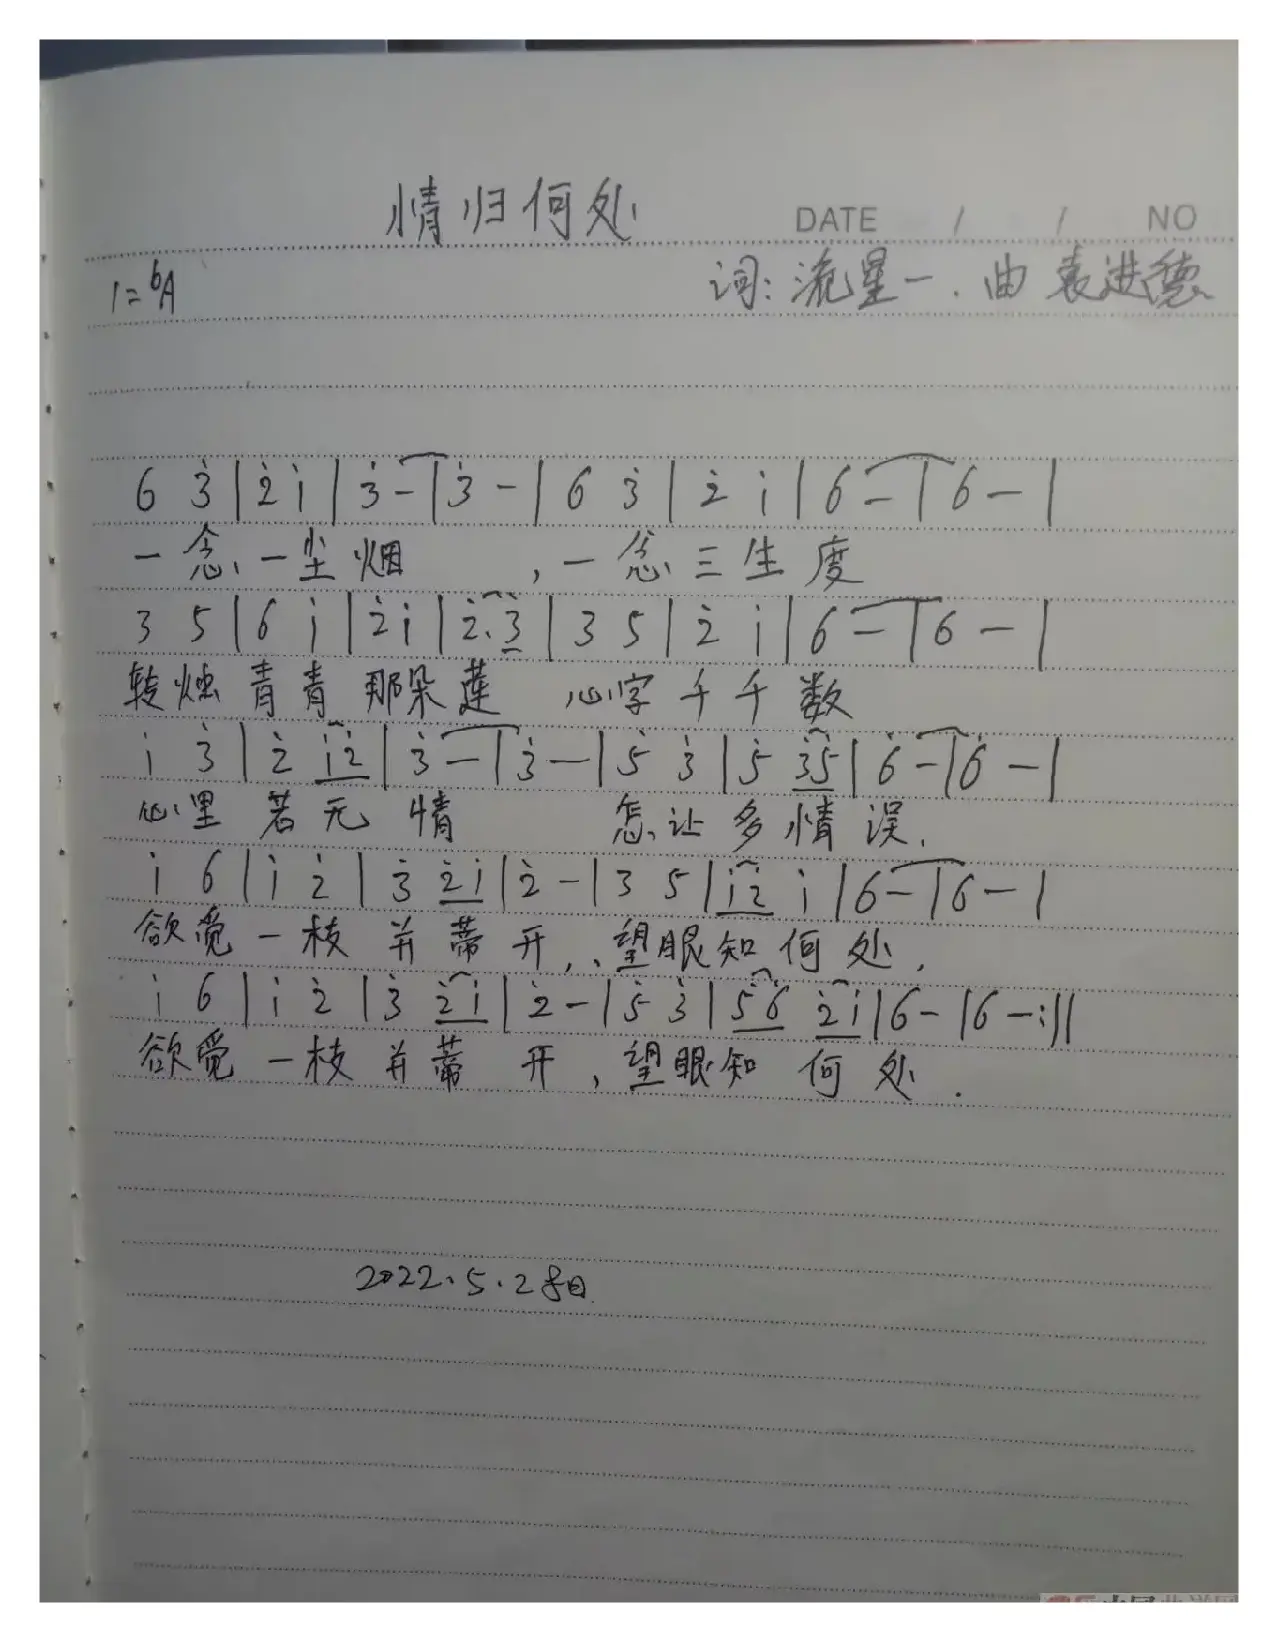 情归何处
DATE / / NO
1=ᵇA
词:流星一.曲 袁进德
6 3̇|2̇ i̇|3̇-|3̇-|6 3̇|2̇ i̇|6-|6-|
一念一尘烟,一念三生度
3 5|6 i̇|2̇ i̇|2̇.3̇|3 5|2̇ i̇|6-|6-|
转烛青青那朵莲 心字千千数
i̇ 3̇|2̇ i̇2̇|3̇-|3̇-|5̇ 3̇|5̇ 3̇5̇|6̇-|6̇-|
心里若无情 怎让多情误.
i̇ 6|i̇ 2̇|3̇ 2̇i̇|2̇-|3 5|i̇2̇ i̇|6-|6-|
欲觉一枝并蒂开,望眼知何处,
i̇ 6|i̇ 2̇|3̇ 2̇i̇|2̇-|5̇ 3̇|5̇6̇ 2̇i̇|6-|6-:||
欲觉一枝并蒂开,望眼知何处.
2022.5.28日